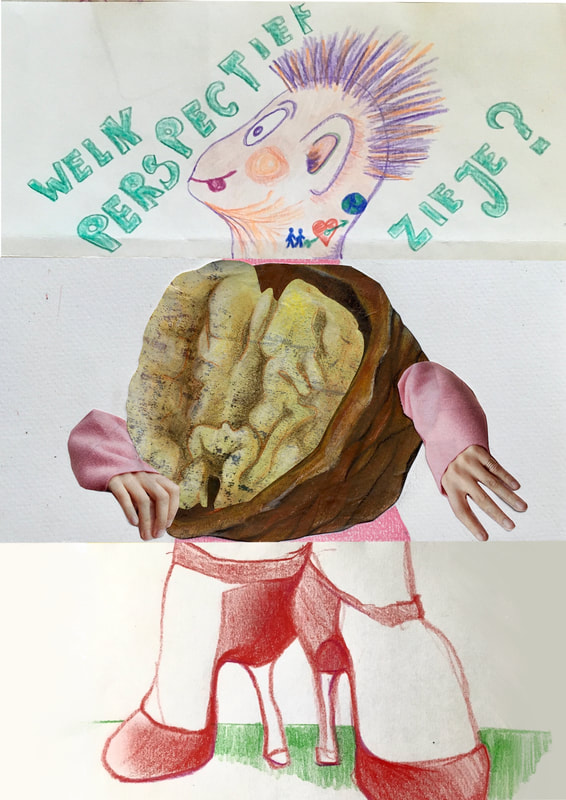 WELK
PERSPECTIEF
ZIE JE?